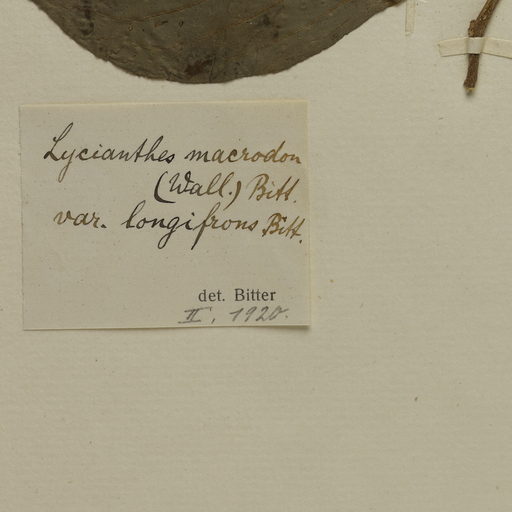 Lycianthes macrodon
(Wall.) Bitt.
var. longifrons Bitt.
det. Bitter
II, 1920.